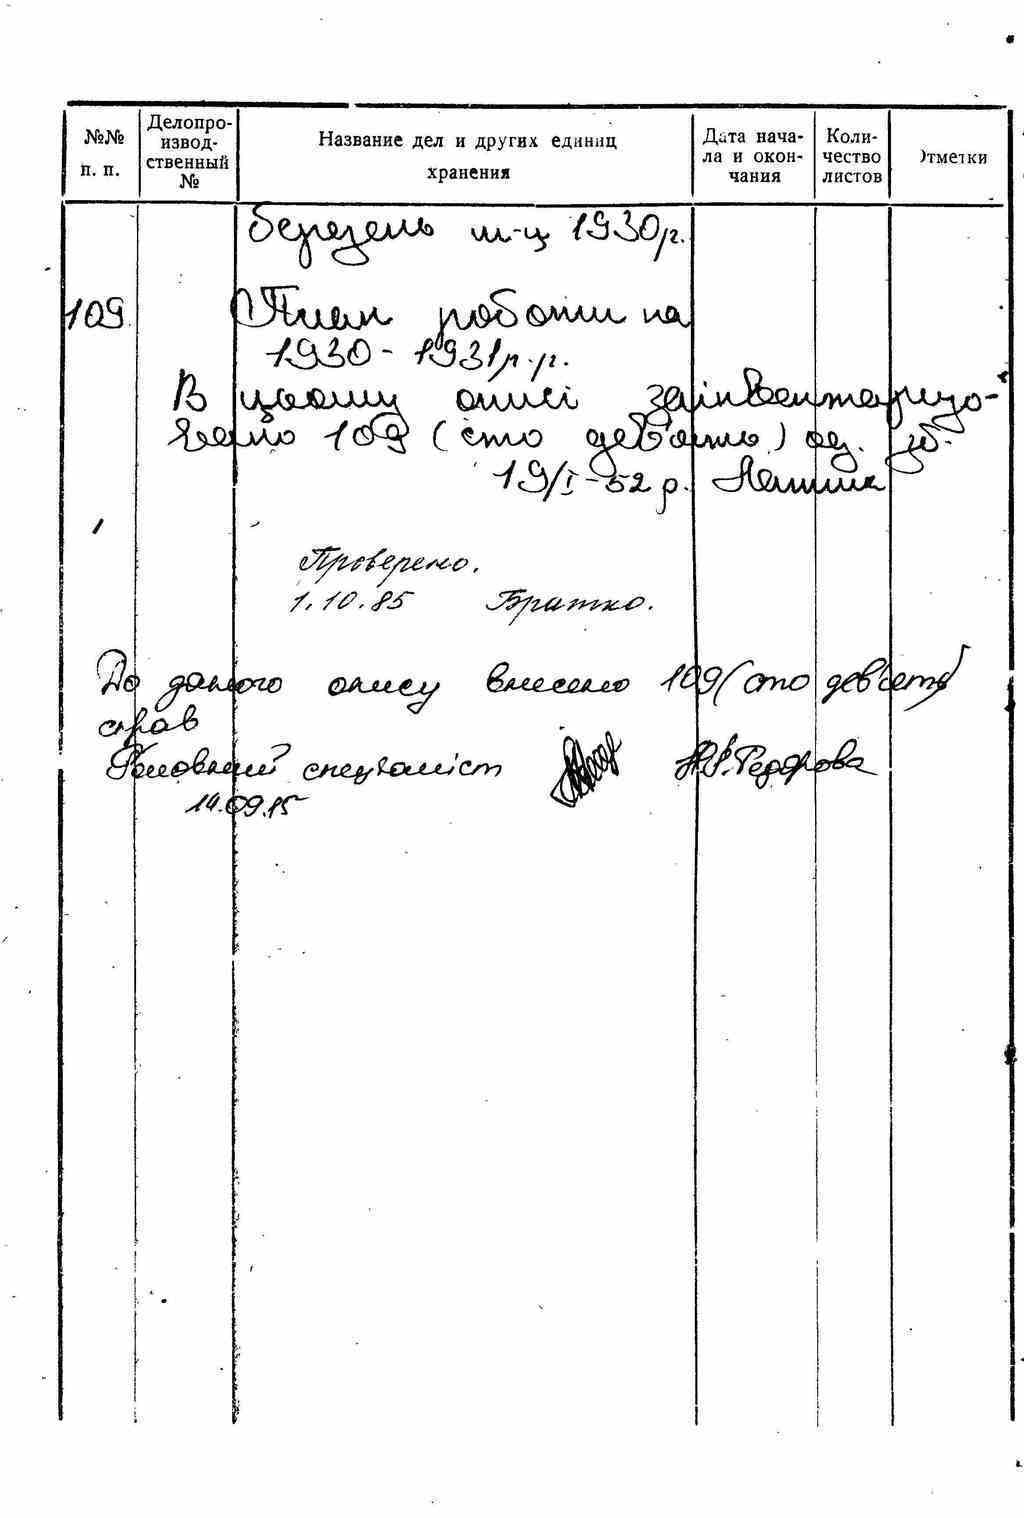 №№ п. п. Делопро-извод-ственный № Название дел и других единиц хранения Дата нача-ла и окон-чания Коли-чество листов Отметки
березень м-ць 1930р.
109. План роботи на
1930-1931р.р.
В цьому описі заінвентаризо-
вано 109 (сто дев'ять) од. зб.
19/I-52 р.
Проверено.
1.10.85 Братко.
До даного опису внесено 109 (сто дев'ять)
справ
Головний спеціаліст Федорова
14.09.15